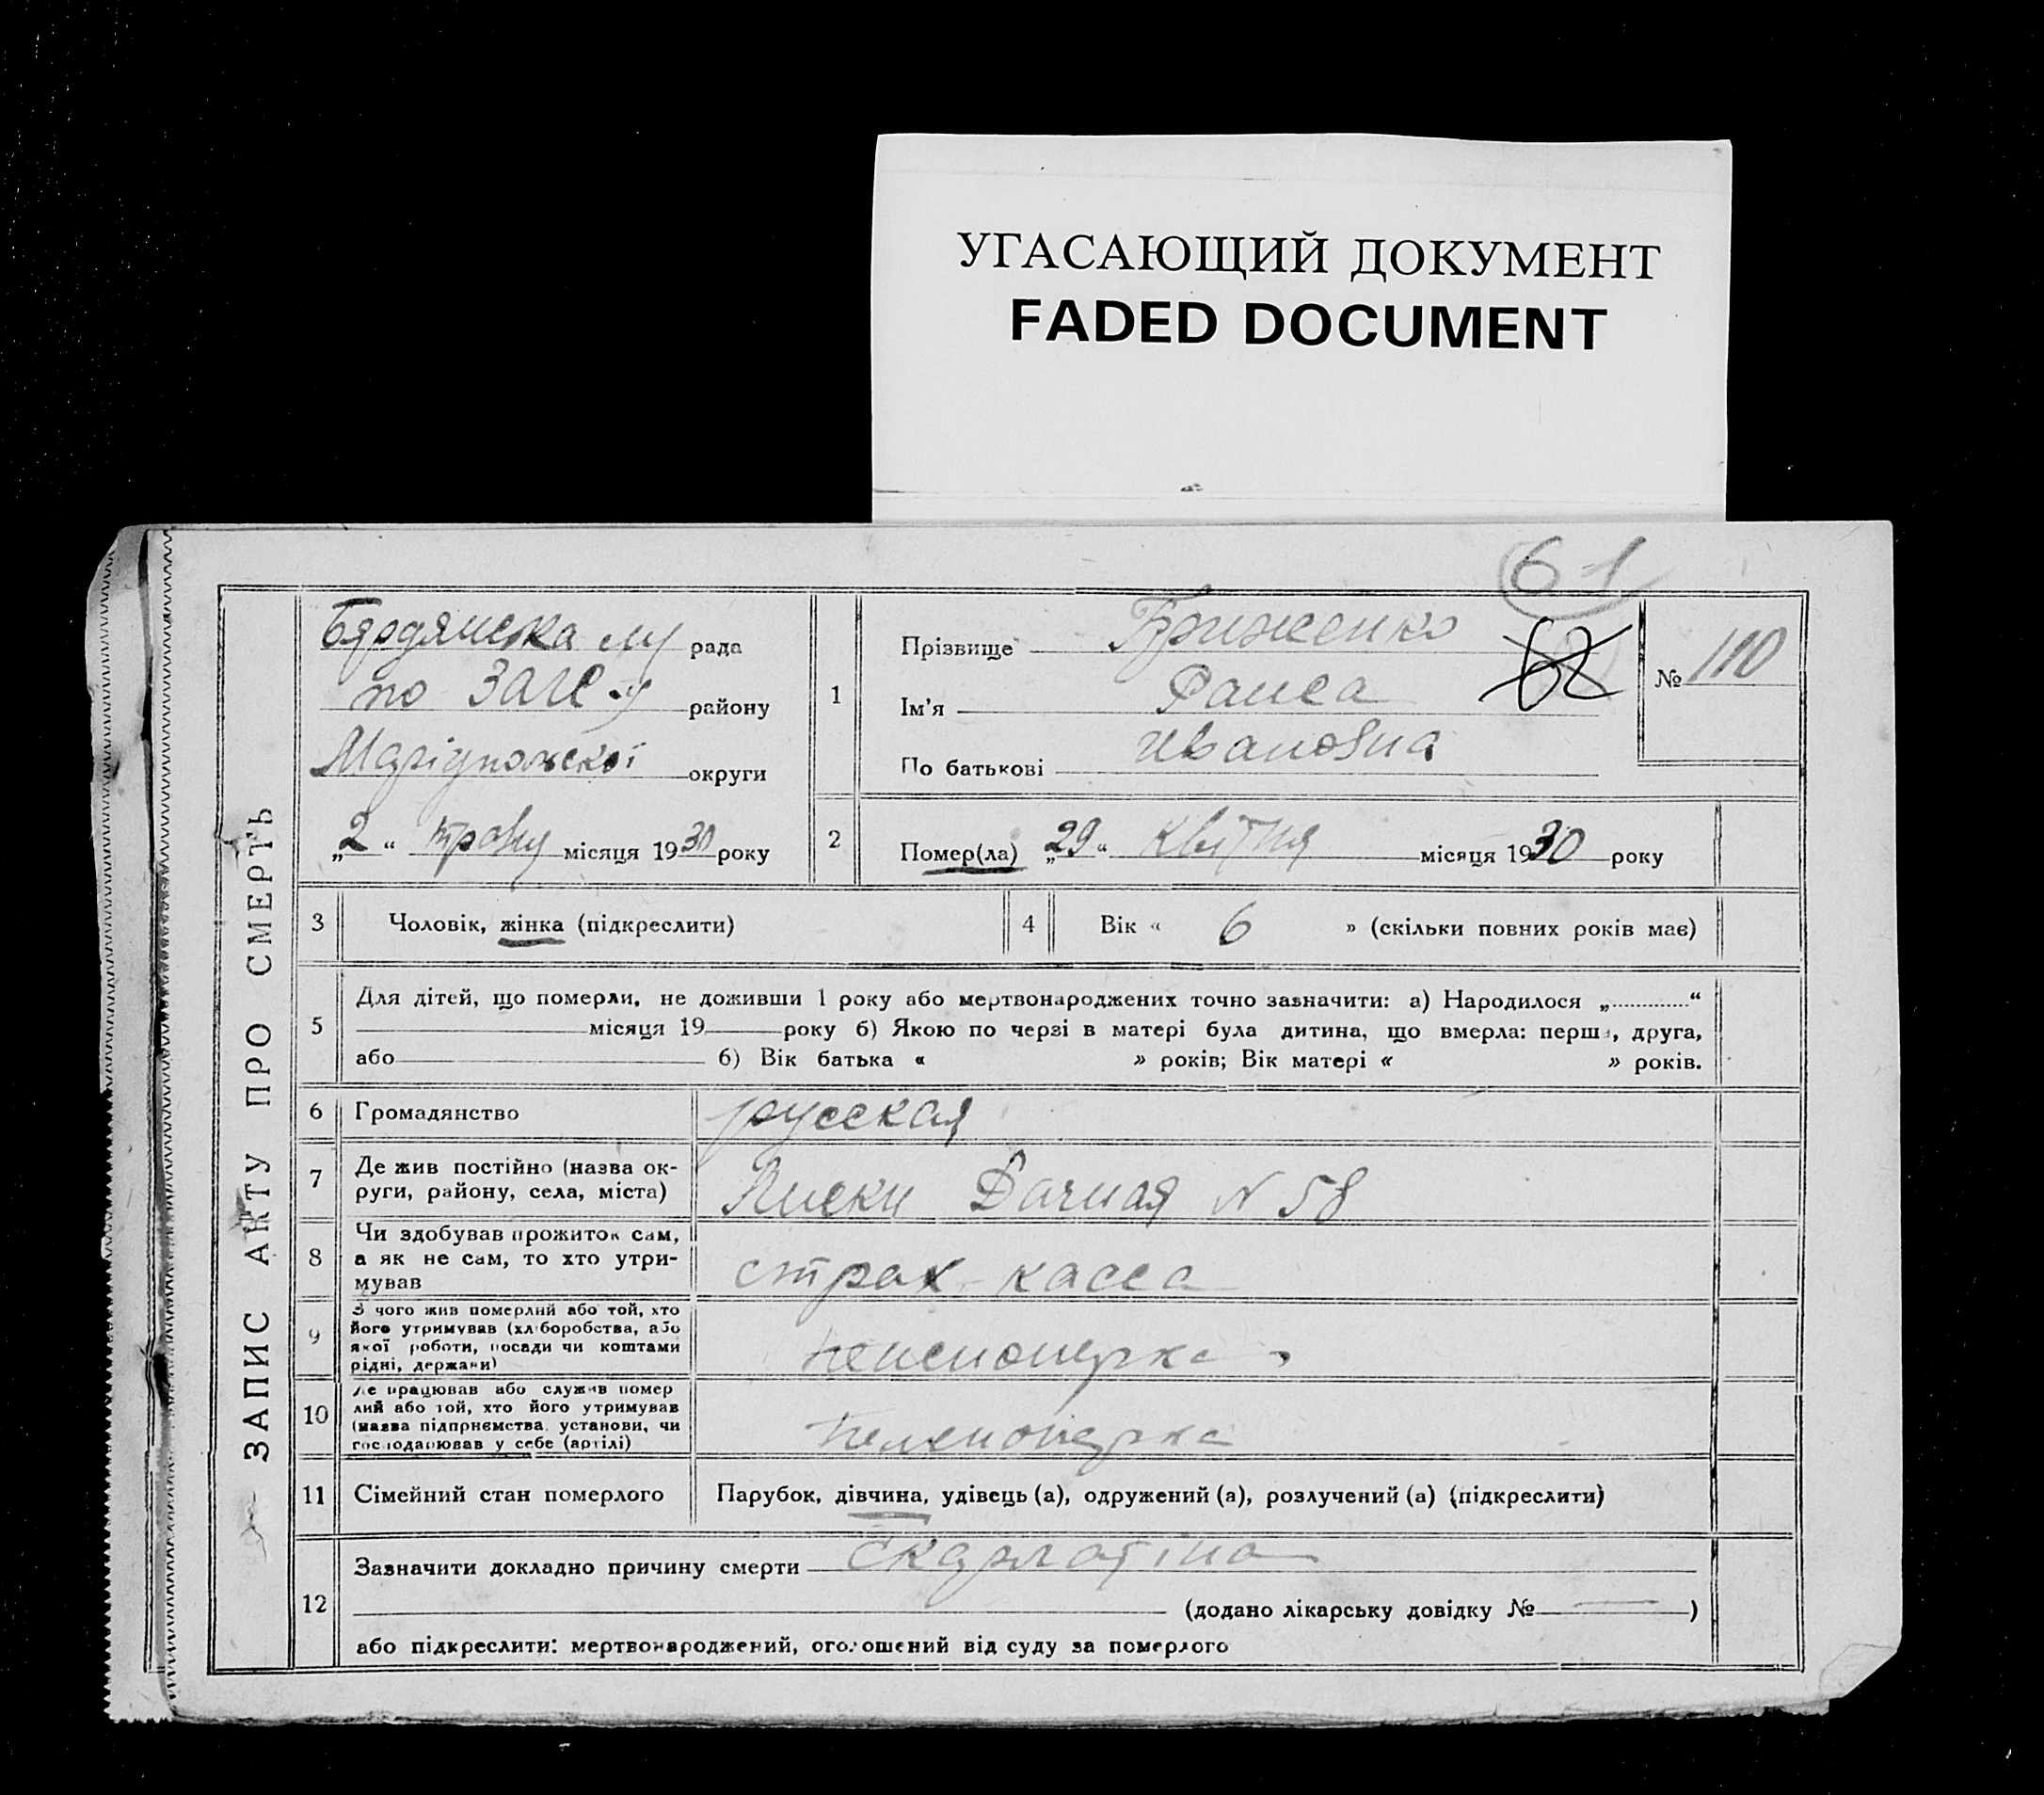 УГАСАЮЩИЙ ДОКУМЕНТ
FADED DOCUMENT
61
ЗАПИС АКТУ ПРО СМЕРТЬ
Бердянська рада
по ЗАГС-у району
Маріупольскої округи
„2“ травня місяця 1930 року
1
Прізвище Бриженко
Ім'я Раиса
По батькові Ивановна
62
№ 110
2
Помер(ла) „29“ квітня місяця 1930 року
3 Чоловік, жінка (підкреслити)
4 Вік « 6 » (скільки повних років має)
5
Для дітей, що померли, не доживши 1 року або мертвонароджених точно зазначити: а) Народилося „............“
місяця 19 року б) Якою по черзі в матері була дитина, що вмерла: перша, друга,
або б) Вік батька « » років; Вік матері « » років.
6 Громадянство русская
7 Де жив постійно (назва ок-
руги, району, села, міста)
Лиски Дачная N 58
8
Чи здобував прожиток сам,
а як не сам, то хто утри-
мував
страх. касса
9
З чого жив померлий або той, хто
його утримував (хліборобства, або
якої роботи, посади чи коштами
рідні, держави)
пенсионерка
10
Де працював або служив помер
лий або той, хто його утримував
(назва підприємства, установи, чи
господарював у себе (артілі)
пенсионерка
11 Сімейний стан померлого Парубок, дівчина, удівець (а), одружений (а), розлучений (а) (підкреслити)
12
Зазначити докладно причину смерти скарлатіна
(додано лікарську довідку № — )
або підкреслити: мертвонароджений, оголошений від суду за померлого